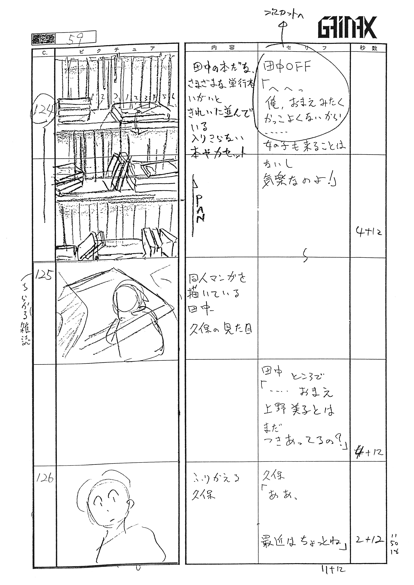 コスカットへ
GAINAX
59
C.
ピクチュア
内容
セリフ
秒数
124
田中の本だな。
さまざまな単行本
いがいと
きれいに並んで
いる
入りきらない
本やカセット
PAN
田中OFF
「へへっ
俺、おまえみたく
かっこよくないから
……
女の子も来ることは
ないし
気楽なのよ!」
4+12
125
ちらかる雑誌
同人マンガを
描いている
田中
久保の見た目
田中
ところで
「……おまえ
上野美子とは
まだ
つきあってるの?」
4+12
126
ふりかえる
久保
久保
「ああ、
最近はちょっとね」
2+12
11+12